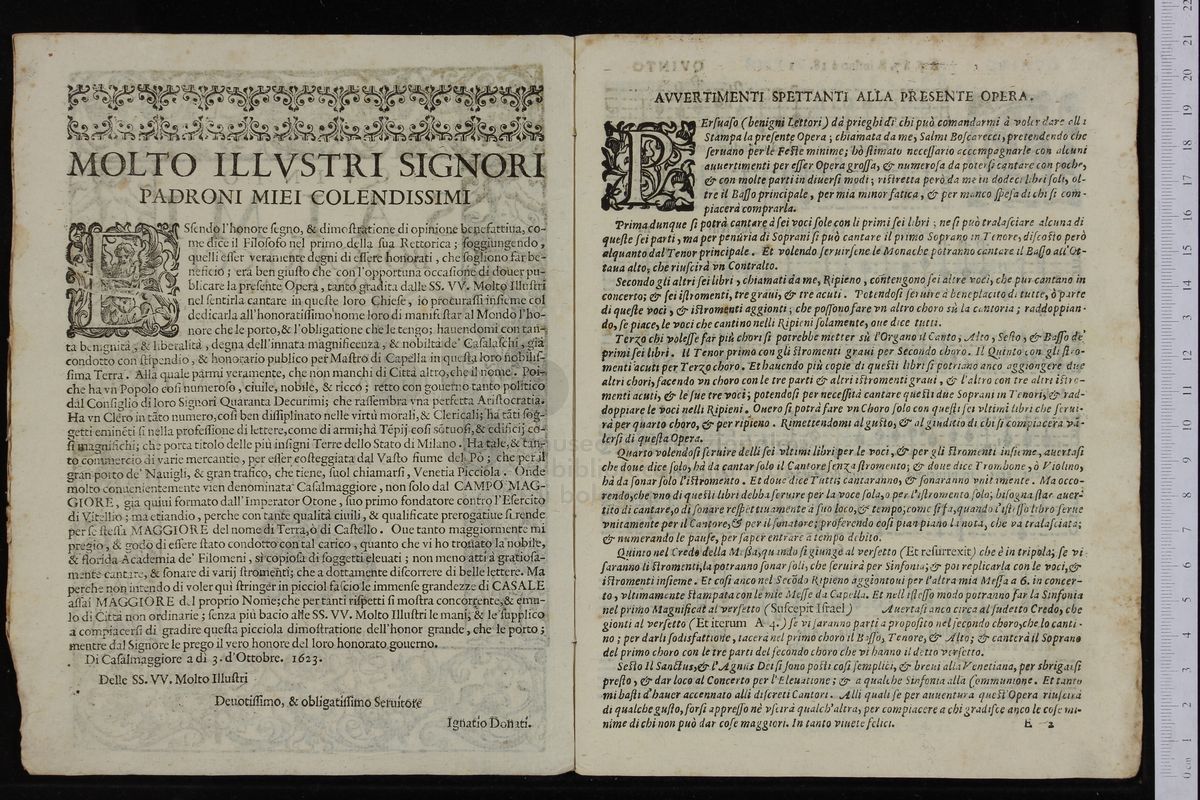 MOLTO ILLVSTRI SIGNORI
PADRONI MIEI COLENDISSIMI
ESsendo l'honore segno, & dimostratione di opinione benefattiua, co-
me dice il Filosofo nel primo della sua Rettorica; soggiungendo,
quelli esser veramente degni di essere honorati, che sogliono far be-
neficio; era ben giusto che con l'opportuna occasione di douer pu-
blicare la presente Opera, tanto gradita dalle SS. VV. Molto Illustri
nel sentirla cantare in queste loro Chiese, io procurassi insieme col
dedicarla all'honoratissimo nome loro di manifestar al Mondo l'ho-
nore che le porto, & l'obligatione che le tengo; hauendomi con tan-
ta benignità, & liberalità, degna dell'innata magnificenza, & nobiltà de' Casalaschi, già
condotto con stipendio, & honorario publico per Mastro di Capella in questa loro nobilis-
sima Terra. Alla quale parmi veramente, che non manchi di Città altro, che il nome. Poi-
che ha vn Popolo così numeroso, ciuile, nobile, & ricco; retto con gouerno tanto politico
dal Consiglio di loro Signori Quaranta Decurimi; che rassembra vna perfetta Aristocratia.
Ha vn Clero in tāto numero, così ben dissiplinato nelle virtù morali, & Clericali; ha tāti sog-
getti eminēti sì nella professione di lettere, come di armi; hà Tēpij così sōtuosi, & edificij co-
sì magnifichi; che porta titolo delle più insigni Terre dello Stato di Milano. Ha tale, & tan-
to commercio di varie mercantie, per esser costeggiata dal Vasto fiume del Pò; che per il
gran porto de' Nauigli, & gran trafico, che tiene, suol chiamarsi, Venetia Picciola. Onde
molto conuenientemente vien denominata Casalmaggiore, non solo dal CAMPO MAG-
GIORE, già quiui formato dall'Imperator Otone, suo primo fondatore contro l'Esercito
di Vitellio; ma etiandio, perche con tante qualità ciuili, & qualificate prerogatiue si rende
per se stessa MAGGIORE del nome di Terra, ò di Castello. Oue tanto maggiormente mi
pregio, & godo di essere stato condotto con tal carico, quanto che vi ho trouato la nobile,
& florida Academia de' Filomeni, sì copiosa di soggetti eleuati; non meno atti à gratiosa-
mente cantare, & sonare di varij stromenti; che a dottamente discorrere di belle lettere. Ma
perche non intendo di voler quì stringer in picciol fascio le immense grandezze di CASALE
assai MAGGIORE del proprio Nome; che per tanti rispetti si mostra concorrente, & emu-
lo di Città non ordinarie; senza più bacio alle SS. VV. Molto Illustri le mani; & le supplico
a compiacersi di gradire questa picciola dimostratione dell'honor grande, che le porto;
mentre dal Signore le prego il vero honore del loro honorato gouerno.
Di Casalmaggiore a dì 3. d'Ottobre. 1623.
Delle SS. VV. Molto Illustri
Deuotissimo, & obligatissimo Seruitore
Ignatio Donati.
AVVERTIMENTI SPETTANTI ALLA PRESENTE OPERA.
PErsuaso (benigni Lettori) da prieghi di chi può comandarmi à voler dare alla
Stampa la presente Opera; chiamata da me, Salmi Boscarecci, pretendendo che
seruano per le Feste minime; hò stimato necessario accompagnarle con alcuni
auuertimenti per esser Opera grossa, & numerosa da potersi cantare con poche,
& con molte parti in diuersi modi; ristretta però da me in dodeci libri soli, ol-
tre il Basso principale, per mia minor fatica, & per manco spesa di chi si com-
piacerà comprarla.
Prima dunque si potrà cantare à sei voci sole con li primi sei libri; ne si può tralasciare alcuna di
queste sei parti, ma per penuria di Soprani si può cantare il primo Soprano in Tenore, discosto però
alquanto dal Tenor principale. Et volendo seruirsene le Monache potranno cantare il Basso all'Ot-
taua alto, che riuscirà vn Contralto.
Secondo gli altri sei libri, chiamati da me, Ripieno, contengono sei altre voci, che pur cantano in
concerto; & sei istromenti, tre graui, & tre acuti. Potendosi seruire à beneplacito di tutte, ò parte
di queste voci, & istromenti aggionti; che possono fare vn altro choro sù la cantoria; raddoppian-
do, se piace, le voci che cantino nelli Ripieni solamente, oue dice tutti.
Terzo chi volesse far più chori si potrebbe metter sù l'Organo il Canto, Alto, Sesto, & Basso de'
primi sei libri. Il Tenor primo con gli stromenti graui per Secondo choro. Il Quinto con gli stro-
menti acuti per Terzo choro. Et hauendo più copie di questi libri si potriano anco aggiongere due
altri chori, facendo vn choro con le tre parti & altri istromenti graui, & l'altro con tre altri istro-
menti acuti, & le sue tre voci; potendosi per necessità cantare questi due Soprani in Tenori, & rad-
doppiare le voci nelli Ripieni. Ouero si potrà fare vn Choro solo con questi sei vltimi libri che serui-
rà per quarto choro, & per ripieno. Rimettendomi al gusto, & al giuditio di chi si compiacerà va-
lersi di questa Opera.
Quarto volendosi seruire delli sei vltimi libri per le voci, & per gli stromenti insieme, auertasi
che doue dice solo, hà da cantar solo il Cantore senza stromento; & doue dice Trombone, ò Violino,
hà da sonar solo l'istromento. Et doue dice Tutti; cantaranno, & sonaranno vnitamente. Ma occo-
rendo, che vno di questi libri debba seruire per la voce sola, o per l'istromento solo; bisogna star auer-
tito di cantare, o di sonare respettiuamente à suo loco, & tempo; come si fa, quando l'istesso libro serue
vnitamente per il Cantore, & per il sonatore; proferendo così pian piano la nota, che và tralasciata;
& numerando le pause, per saper entrare a tempo debito.
Quinto nel Credo della Messa, quando si giunge al versetto (Et resurrexit) che è in tripola; se vi
saranno li stromenti, la potranno sonar soli, che seruirà per Sinfonia; & poi replicarla con le voci, &
istromenti insieme. Et così anco nel Secōdo Ripieno aggiontoui per l'altra mia Messa a 6. in concer-
to, vltimamente stampata con le mie Messe da Capella. Et nell'istesso modo potranno far la Sinfonia
nel primo Magnificat al versetto (Suscepit Israel) Auertasi anco circa al sudetto Credo, che
gionti al versetto (Et iterum A 4.) se vi saranno parti a proposito nel secondo choro, che lo canti-
no; per darli sodisfattione, tacerà nel primo choro il Basso, Tenore, & Alto; & canterà il Soprano
del primo choro con le tre parti del secondo choro che vi hanno il detto versetto.
Sesto Il Sanctus, & l'Agnus Dei si sono posti così semplici, & breui alla Venetiana, per sbrigarsi
presto, & dar loco al Concerto per l'Eleuatione; & a qualche Sinfonia alla Communione. Et tanto
mi basti d'hauer accennato alli discreti Cantori. Alli quali se per auuentura quest'Opera riuscirà
di qualche gusto, forsi appresso nè vscirà qualch'altra, per compiacere a chi gradisce anco le cose mi-
nime di chi non può dar cose maggiori. In tanto viuete felici.
E 2